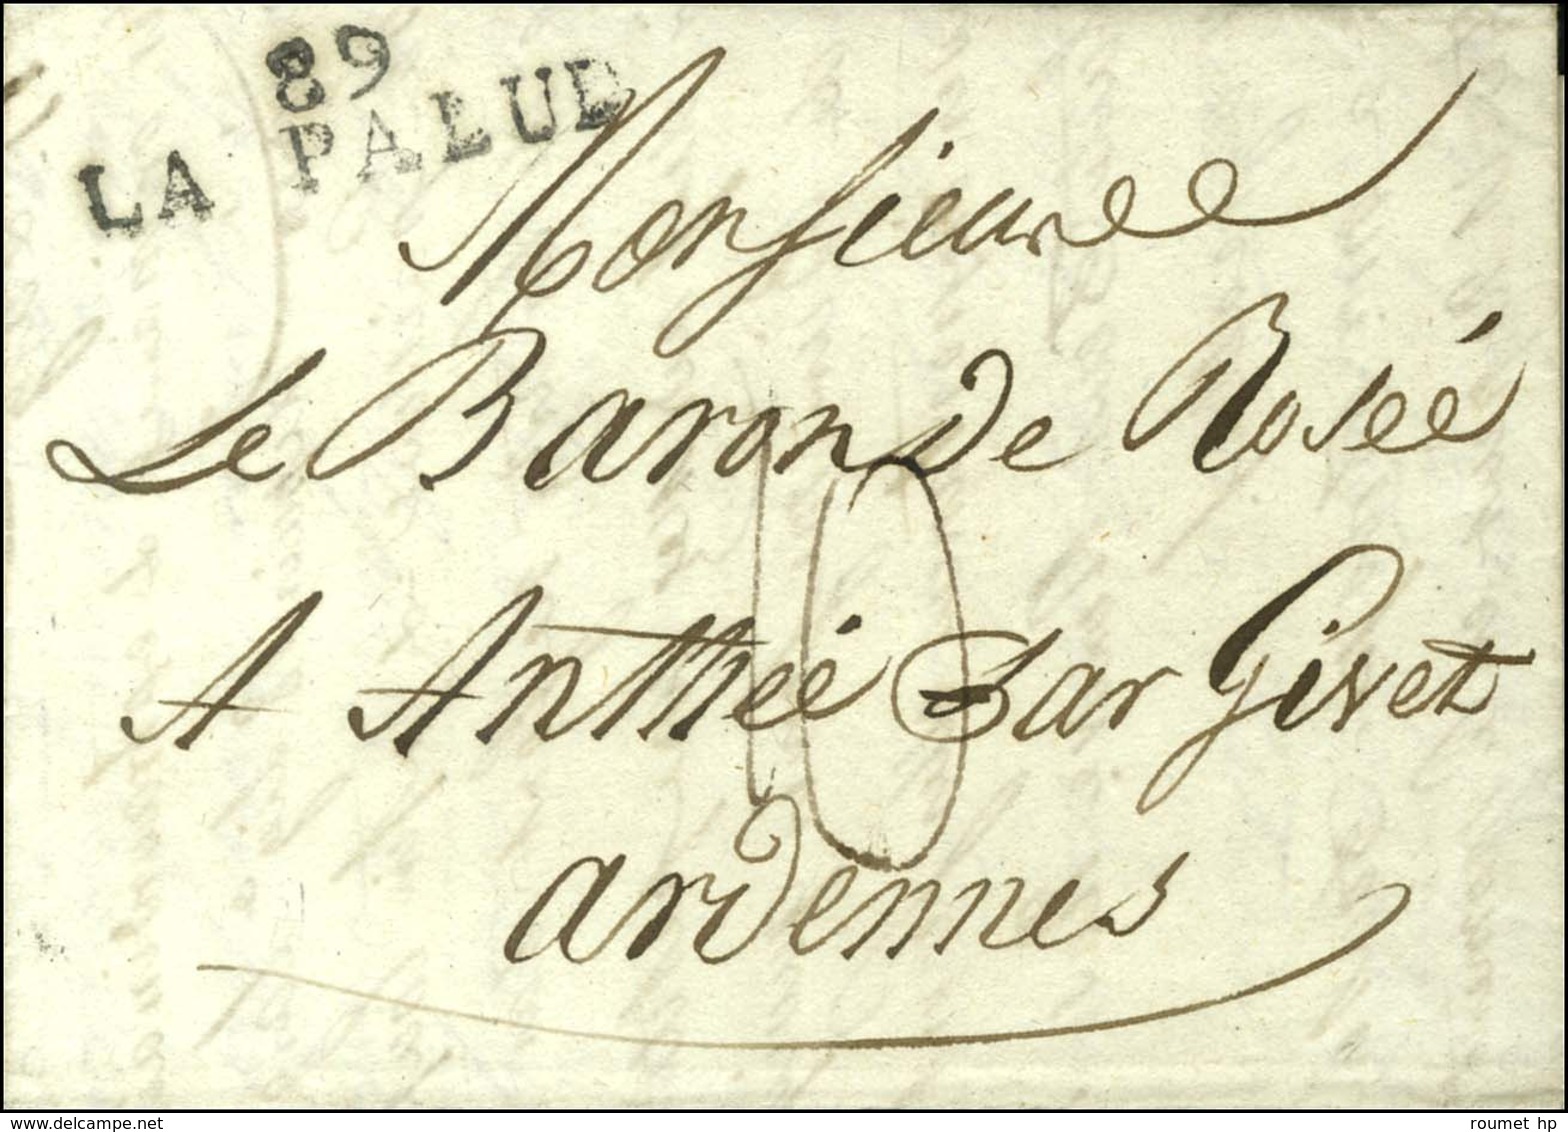 89
LA PALUD
Monsieur
Le Baron de Rosée
10
A Anthée par Givet
ardennes
www.delcampe.net
roumet hp